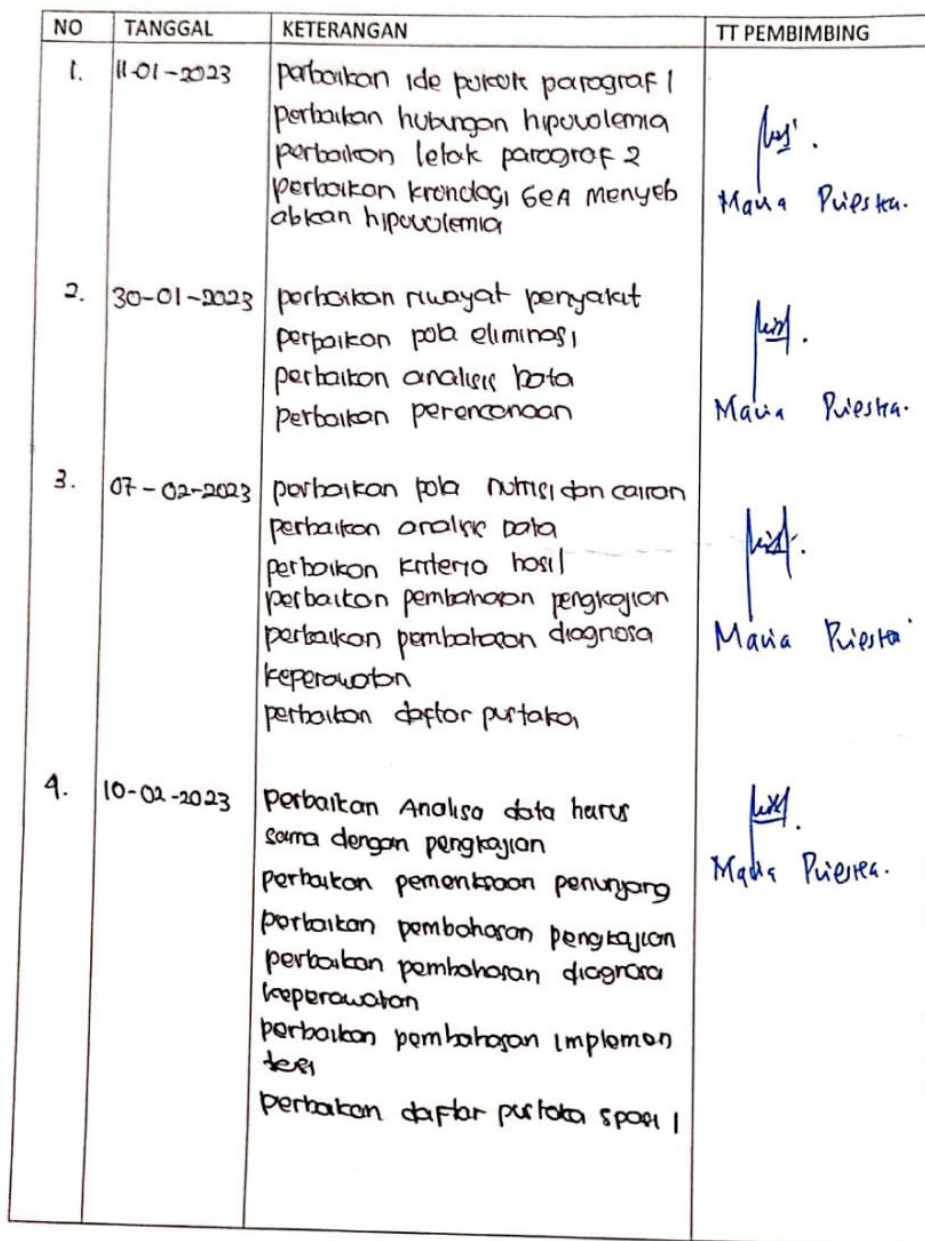 NO TANGGAL KETERANGAN TT PEMBIMBING
1. 11-01-2023 perbaikan ide pokok paragraf 1
perbaikan hubungan hipovolemia
perbaikan letak paragraf 2
perbaikan kronologi GEA menyeb
abkan hipovolemia
Maria Priestra.
2. 30-01-2023 perbaikan riwayat penyakit
perbaikan pola eliminasi
perbaikan analisis data
perbaikan perencanaan
Maria Priestra.
3. 07-02-2023 perbaikan pola nutrisi dan cairan
perbaikan analisis data
perbaikan kriteria hasil
perbaikan pembahasan pengkajian
perbaikan pembahasan diagnosa
keperawatan
perbaikan daftar pustaka
Maria Priestra
4. 10-02-2023 perbaikan Analisa data harus
sama dengan pengkajian
perbaikan pemeriksaan penunjang
perbaikan pembahasan pengkajian
perbaikan pembahasan diagnosa
keperawatan
perbaikan pembahasan implemen
tasi
perbaikan daftar pustaka spasi 1
Maria Priestra.